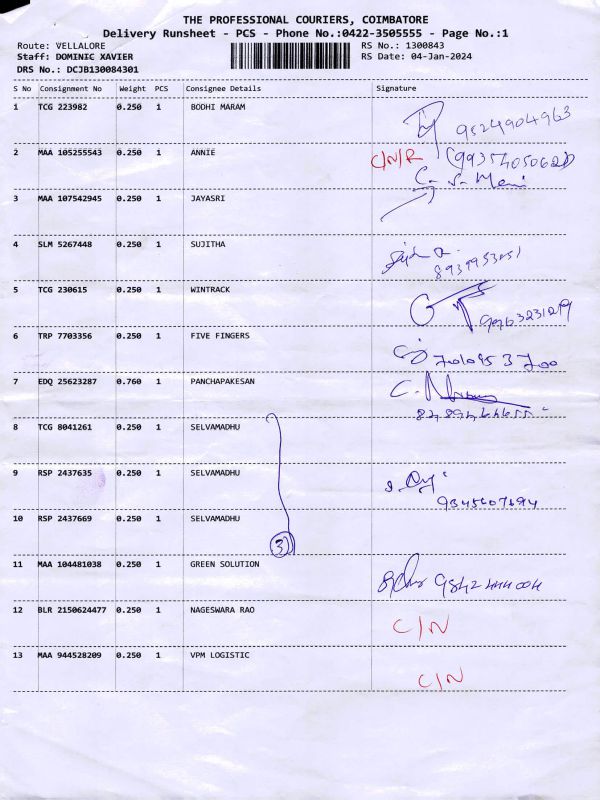 THE PROFESSIONAL COURIERS, COIMBATORE
Delivery Runsheet - PCS - Phone No.:0422-3505555 - Page No.:1
Route: VELLALORE RS No.: 1300843
Staff: DOMINIC XAVIER RS Date: 04-Jan-2024
DRS No.: DCJB130084301
S No Consignment No Weight PCS Consignee Details Signature
1 TCG 223982 0.250 1 BODHI MARAM
9524904963
2 MAA 105255543 0.250 1 ANNIE C/N/R
3 MAA 107542945 0.250 1 JAYASRI
4 SLM 5267448 0.250 1 SUJITHA
5 TCG 230615 0.250 1 WINTRACK
6 TRP 7703356 0.250 1 FIVE FINGERS
7 EDQ 25623287 0.760 1 PANCHAPAKESAN
8 TCG 8041261 0.250 1 SELVAMADHU
9 RSP 2437635 0.250 1 SELVAMADHU
9345607694
10 RSP 2437669 0.250 1 SELVAMADHU
3
11 MAA 104481038 0.250 1 GREEN SOLUTION
9842444004
12 BLR 2150624477 0.250 1 NAGESWARA RAO
C/N
13 MAA 944528209 0.250 1 VPM LOGISTIC
C/N